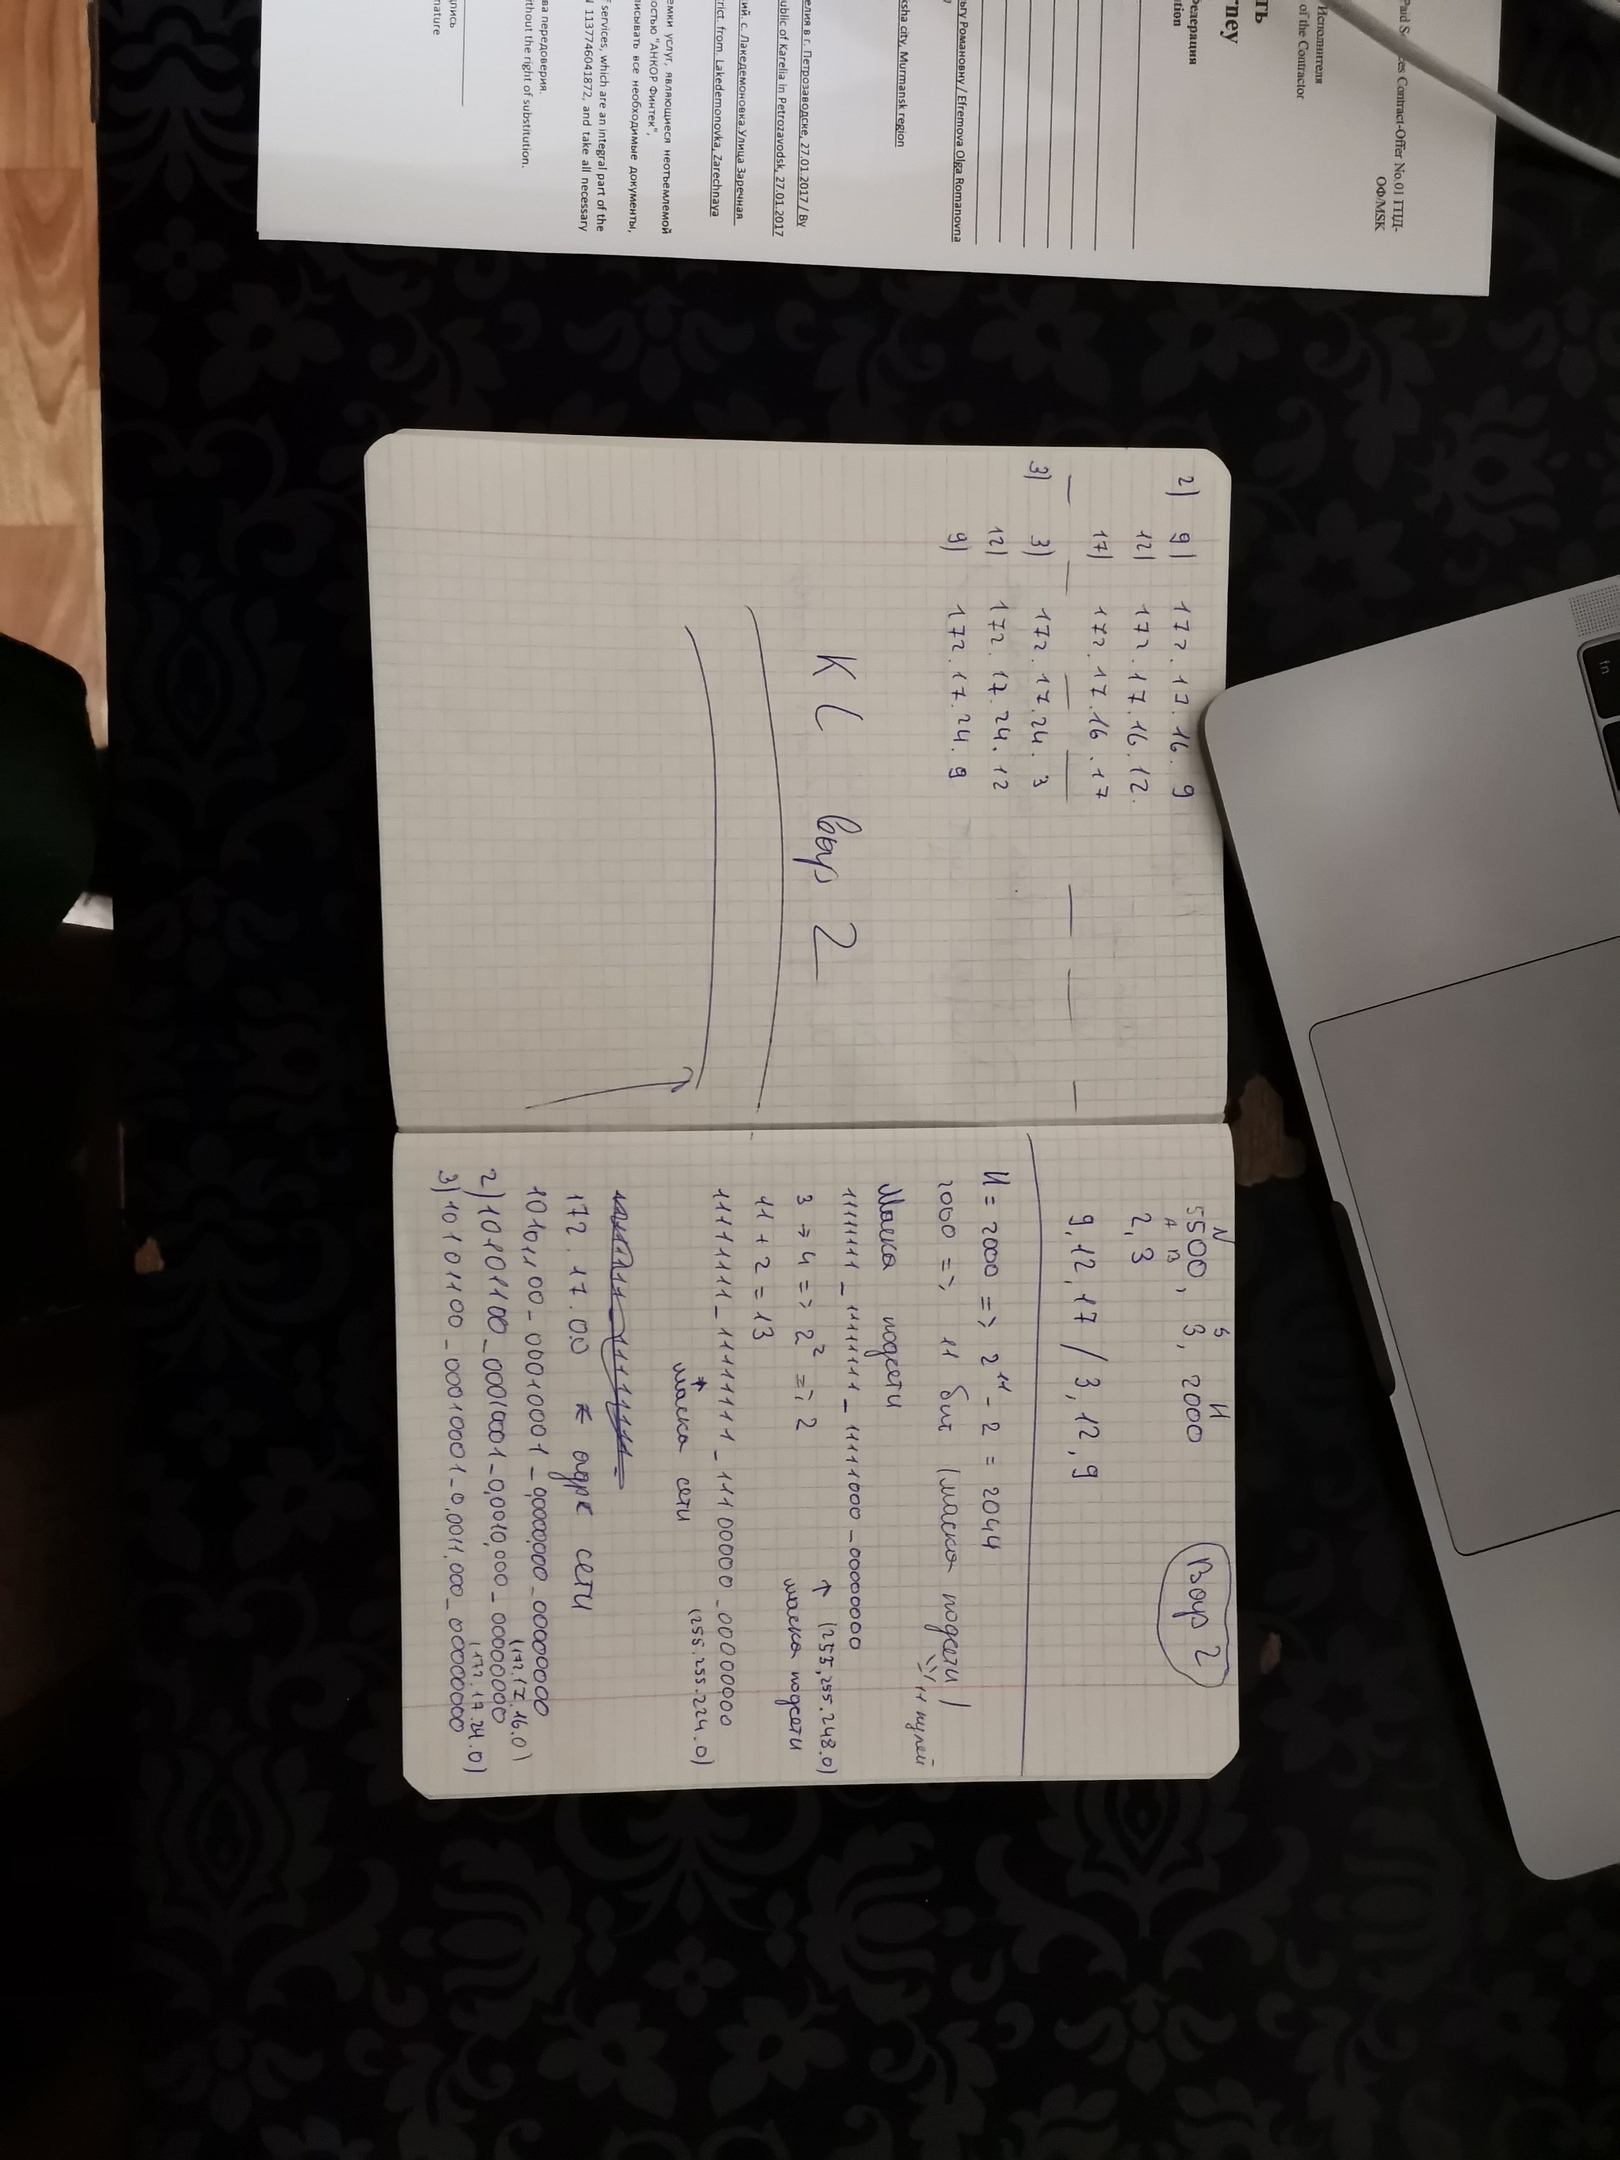 fn
Paid S
es Contract-Offer No.01 ГПД-
ОФ/MSK
Исполнителя
of the Contractor
ть
rney
Федерация
tion
ьгу Романовну / Efremova Olga Romanovna
ksha city, Murmansk region
елия в г. Петрозаводске, 27.01.2017 / By
ublic of Karelia in Petrozavodsk, 27.01.2017
кий. с. Лакедемоновка.Улица Заречная
trict. from. Lakedemonovka, Zarechnaya
емки услуг, являющиеся неотъемлемой
ностью "АНКОР Финтек",
писывать все необходимые документы,
f services, which are an integral part of the
N 1137746041872, and take all necessary
ва передоверия.
ithout the right of substitution.
дпись
nature
2) 9) 172.17.16.9
12) 172.17.16.12.
17) 172.17.16.17
3) 3) 172.17.24.3
12) 172.17.24.12
9) 172.17.24.9
КС вар 2
N S H
5500, 3, 2000
Вар 2
A B
2, 3
9, 12, 17 / 3, 12, 9
H = 2000 => 2^11 - 2 = 2044
2000 => 11 бит (маска подсети)
11 нулей
Маска подсети
11111111 _ 11111111 _ 11111000 _ 00000000
↑ (255.255.248.0)
маска подсети
3 → 4 => 2^2 => 2
11 + 2 = 13
11111111 _ 11111111 _ 11100000 _ 00000000
(255.255.224.0)
маска сети
172.17.0.0 ← адрес сети
10101100 _ 00010001 _ 00000000 _ 00000000
(172.17.16.0)
2) 10101100 _ 00010001 _ 0,0010,000 _ 00000000
(172.17.24.0)
3) 10101100 _ 00010001 _ 0,0011,000 _ 00000000